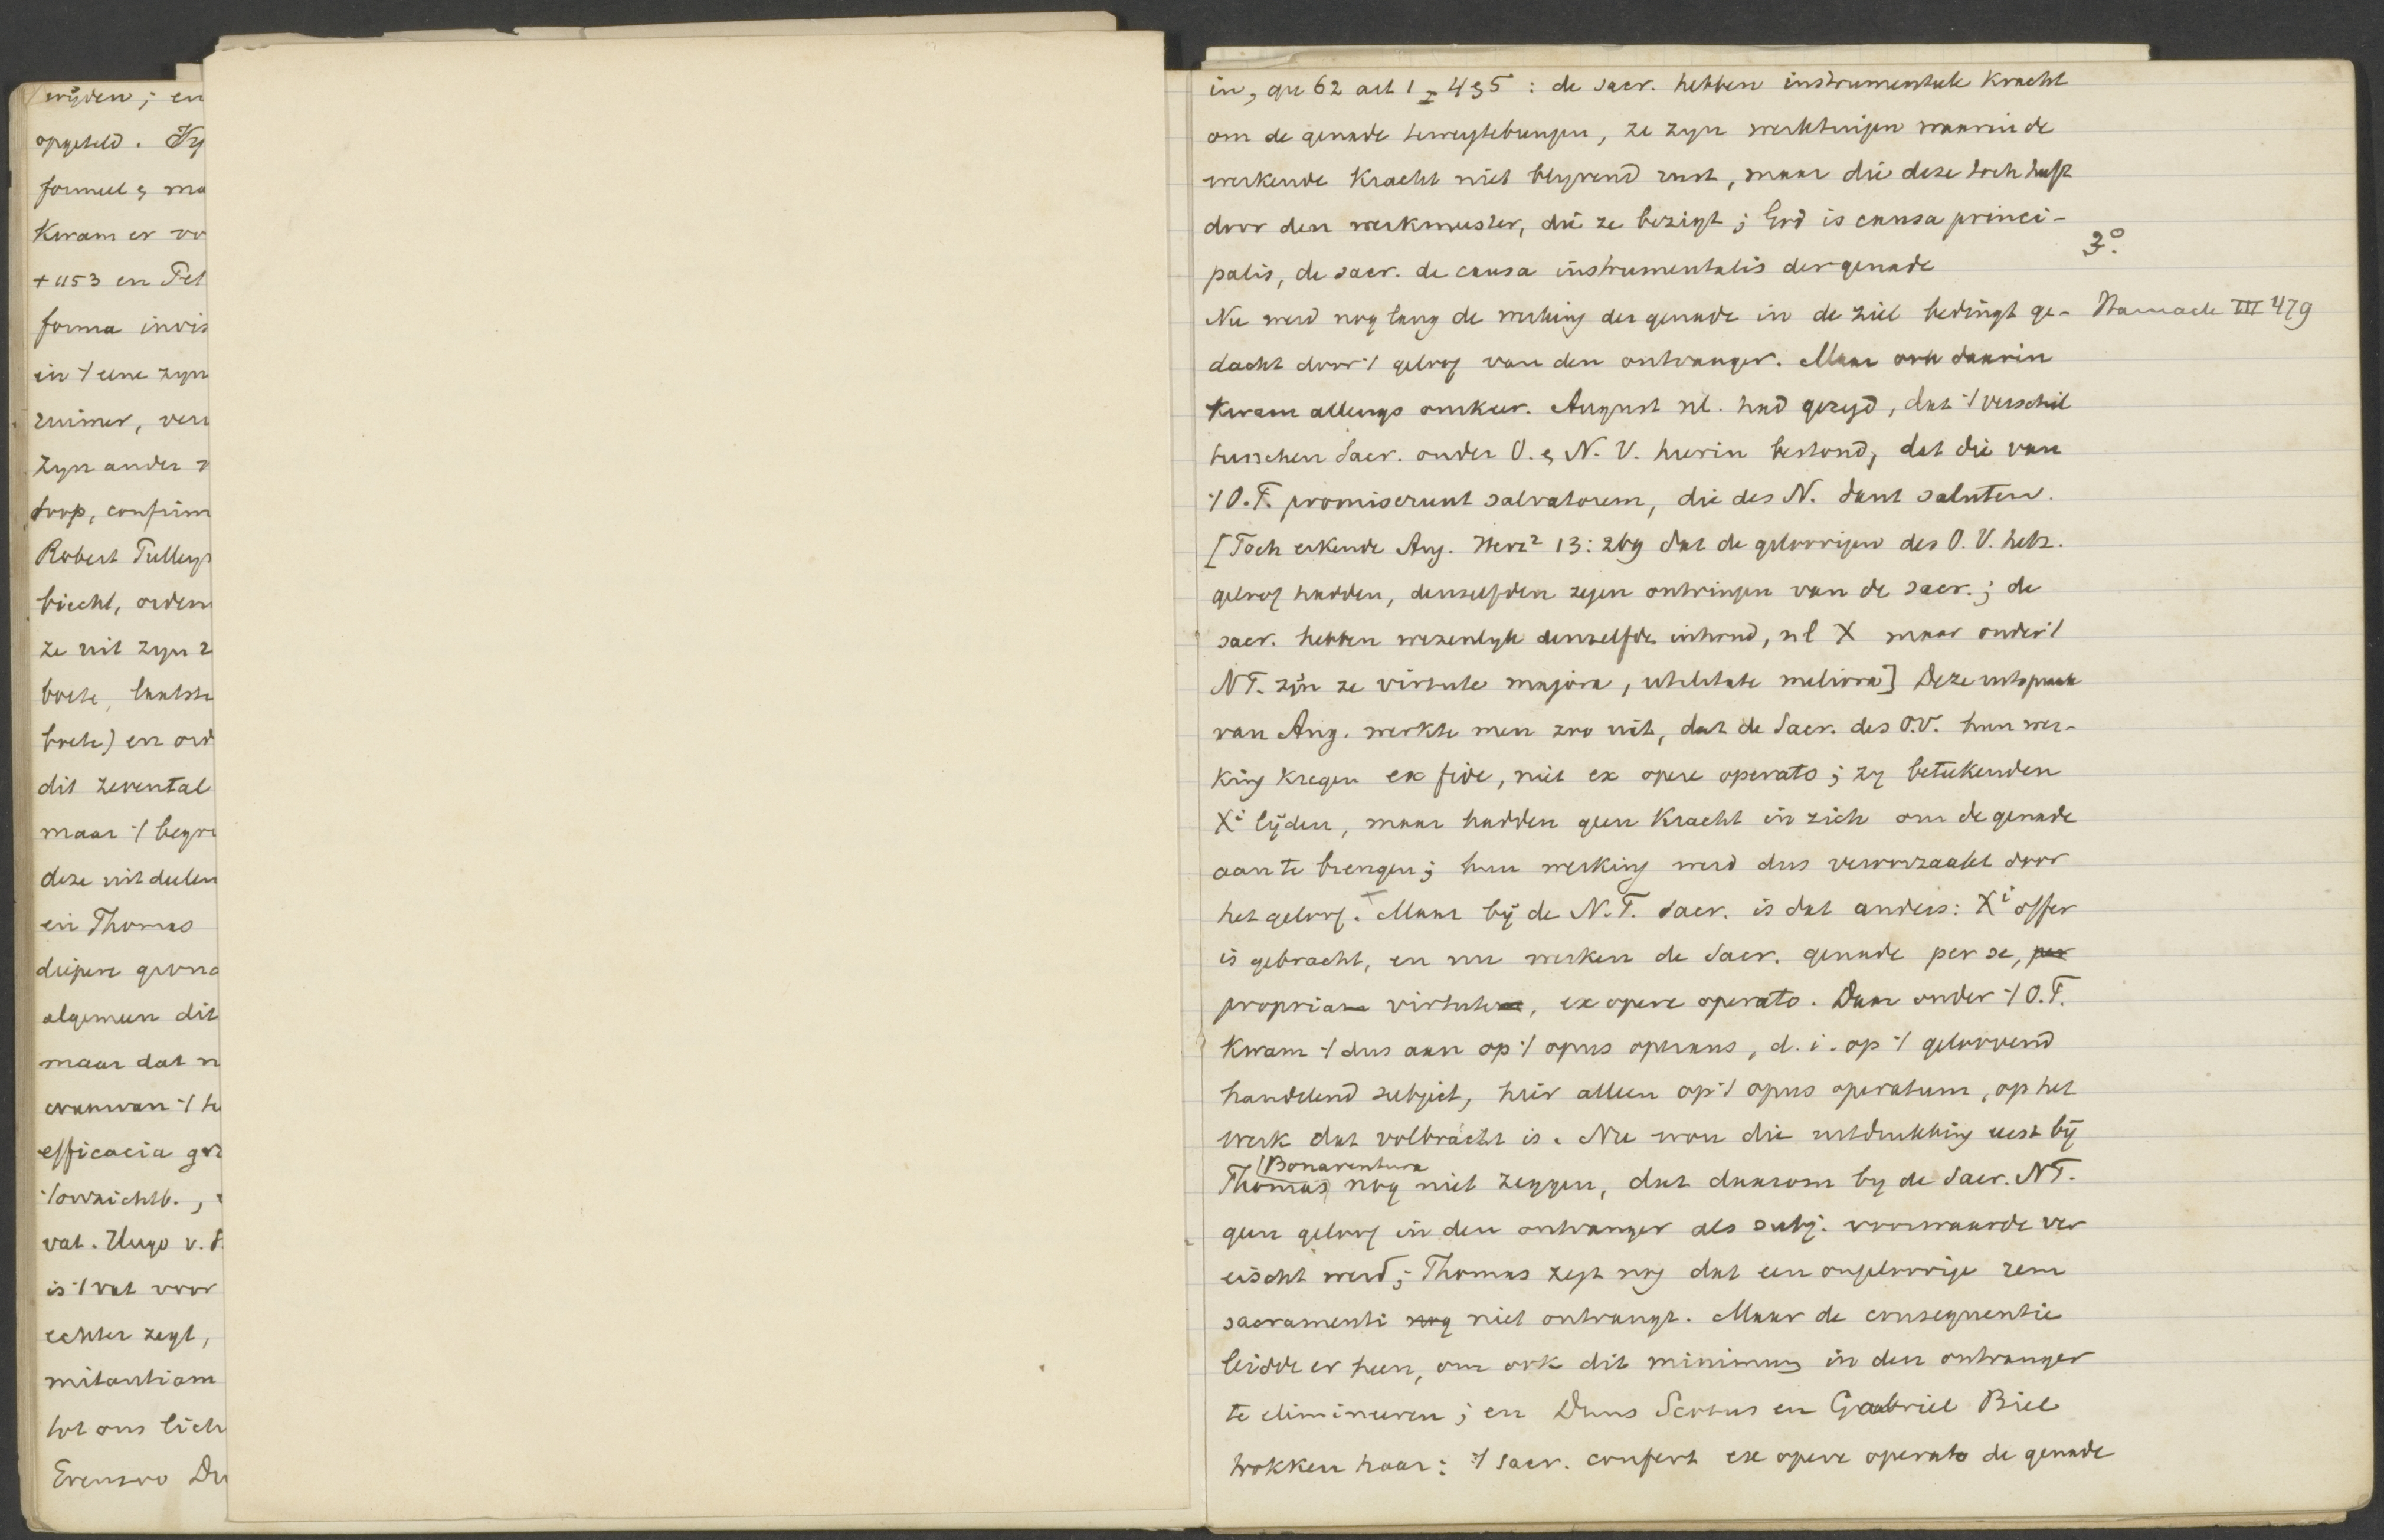 wijden; en
opgeteld. Hy
formeel & ma
Kwam er vo
+ 1153 en Pet
forma invis
in 't eene zyn
ruimer, ver
Zyn ander
doop, confirm
Robert Pulleyn
biecht, orden
ze uit zyn
boete, laatste
boete) en ord
dit zevental
maar 't begri
deze uitdeelen
en Thomas
diepere grond
algemeen dit
maar dat n
evenwan 't
efficacia gr
't onzichtb.,
vat. Hugo v. S
is 't vat voor
echter zegt,
mitantiam
tot ons lich
Evenzoo Du
in, qu 62 art 1 - 4 & 5 : de sacr. hebben instrumentele kracht
om de genade teweegtebrengen, ze zyn werktuigen waarin de
werkende Kracht niet blyvend rust, maar die deze toch heeft
door den werkmeester, die ze bezigt; God is causa princi-
palis, de sacr. de causa instrumentalis der genade
3°.
Nu werd nog lang de werking der genade in de ziel bedingt ge-
Harnack III 479
dacht door 't geloof van den ontvanger. Maar ook daarin
Kwam allengs omkeer. August nl. had gezegd, dat 't verschil
tusschen Sacr. onder O. & N. V. hierin bestond, dat die van
't O.T. promiserunt salvatorem, die des N. dant salutem.
[Toch erkende Aug. Herz² 13: 269 dat de geloovigen des O. V. hetz.
geloof hadden, denzelfden zegen ontvingen van de sacr.; de
sacr. hebben wezenlyk denzelfde inhoud, nl X maar onder 't
NT. zijn ze virtute majora, utilitate meliora] Deze uitspraak
van Aug. werkte men zoo uit, dat de Sacr. des O.V. hun wer-
king kregen ex fide, niet ex opere operato; zy beteekenden
Xi lijden, maar hadden geen Kracht in zich om de genade
aan te brengen; hun werking werd dus veroorzaakt door
het geloof. Maar bij de N.T. sacr. is dat anders: Xi offer
is gebracht, en nu werken de Sacr. genade per se, per
propriam virtutem, ex opere operato. Daar onder 't O.T.
Kwam 't dus aan op 't opus operans, d.i. op 't geloovend
handelend subject, hier alleen op 't opus operatum, op het
werk dat volbracht is. Nu wou die uitdrukking eerst bij
Bonaventura
Thomas nog niet zeggen, dat daarom by de Sacr. NT.
geen geloof in den ontvanger als subj. voorwaarde ver
eischt werd; Thomas zegt nog dat een ongeloovige rem
sacramenti nog niet ontvangt. Maar de consequentie
leidde er heen, om ook dit minimum in den ontvanger
te elimineeren; en Duns Scotus en Gabriel Biel
trokken haar: 't sacr. confert ex opere operato de genade